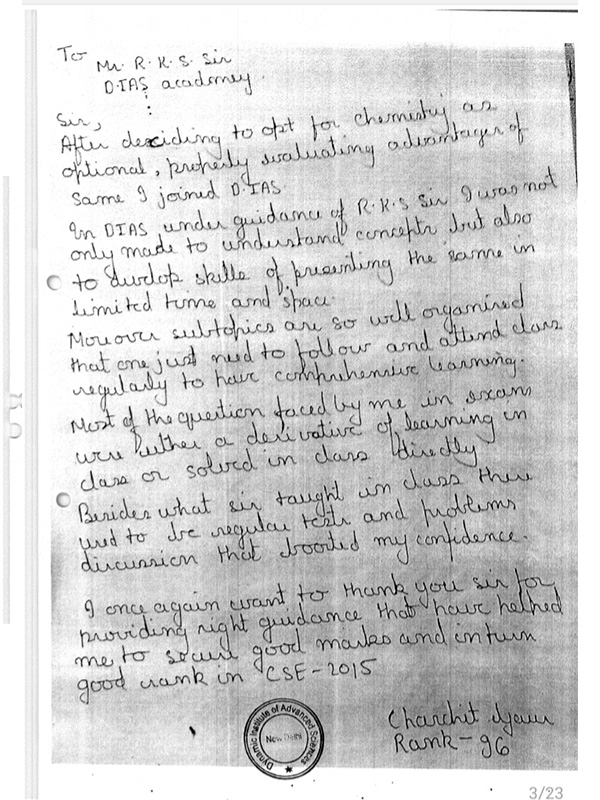 To
Mr. R. K. S. Sir
D.IAS academey.
Sir,
After deciding to opt for chemistry as
optional, properly evaluating advantages of
same I joined D.IAS.
In DIAS under guidance of R.K.S Sir I was not
only made to understand concepts but also
to develop skills of presenting the same in
limited time and space
Moreover subtopics are so well organised
that one just need to follow and attend class
regularly to have comprehensive learning.
Most of the question faced by me in exam
were either a derivative of learning in
class or solved in class directly
Besides what sir taught in class there
used to be regular tests and problems
discussion that boosted my confidence.
I once again want to thank you sir for
providing right guidance that have helped
me to secure good marks and in turn
good rank in CSE-2015
Charchit
Rank-96
Dynamic Institute of Advanced Sciences
New Delhi
3/23